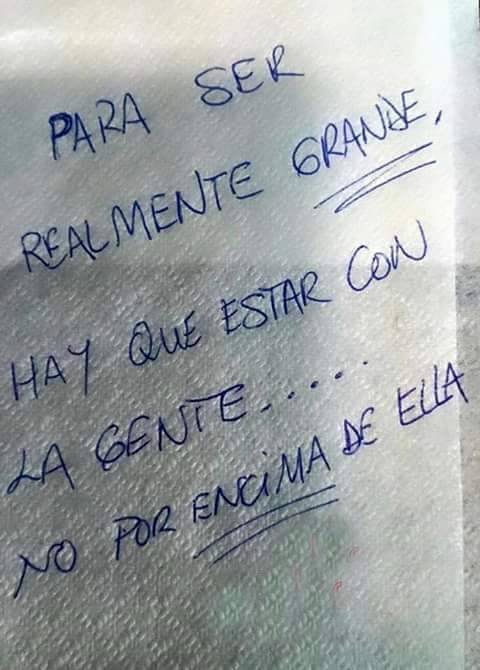 PARA SER
REALMENTE GRANDE,
HAY QUE ESTAR CON
LA GENTE.....
NO POR ENCIMA DE ELLA